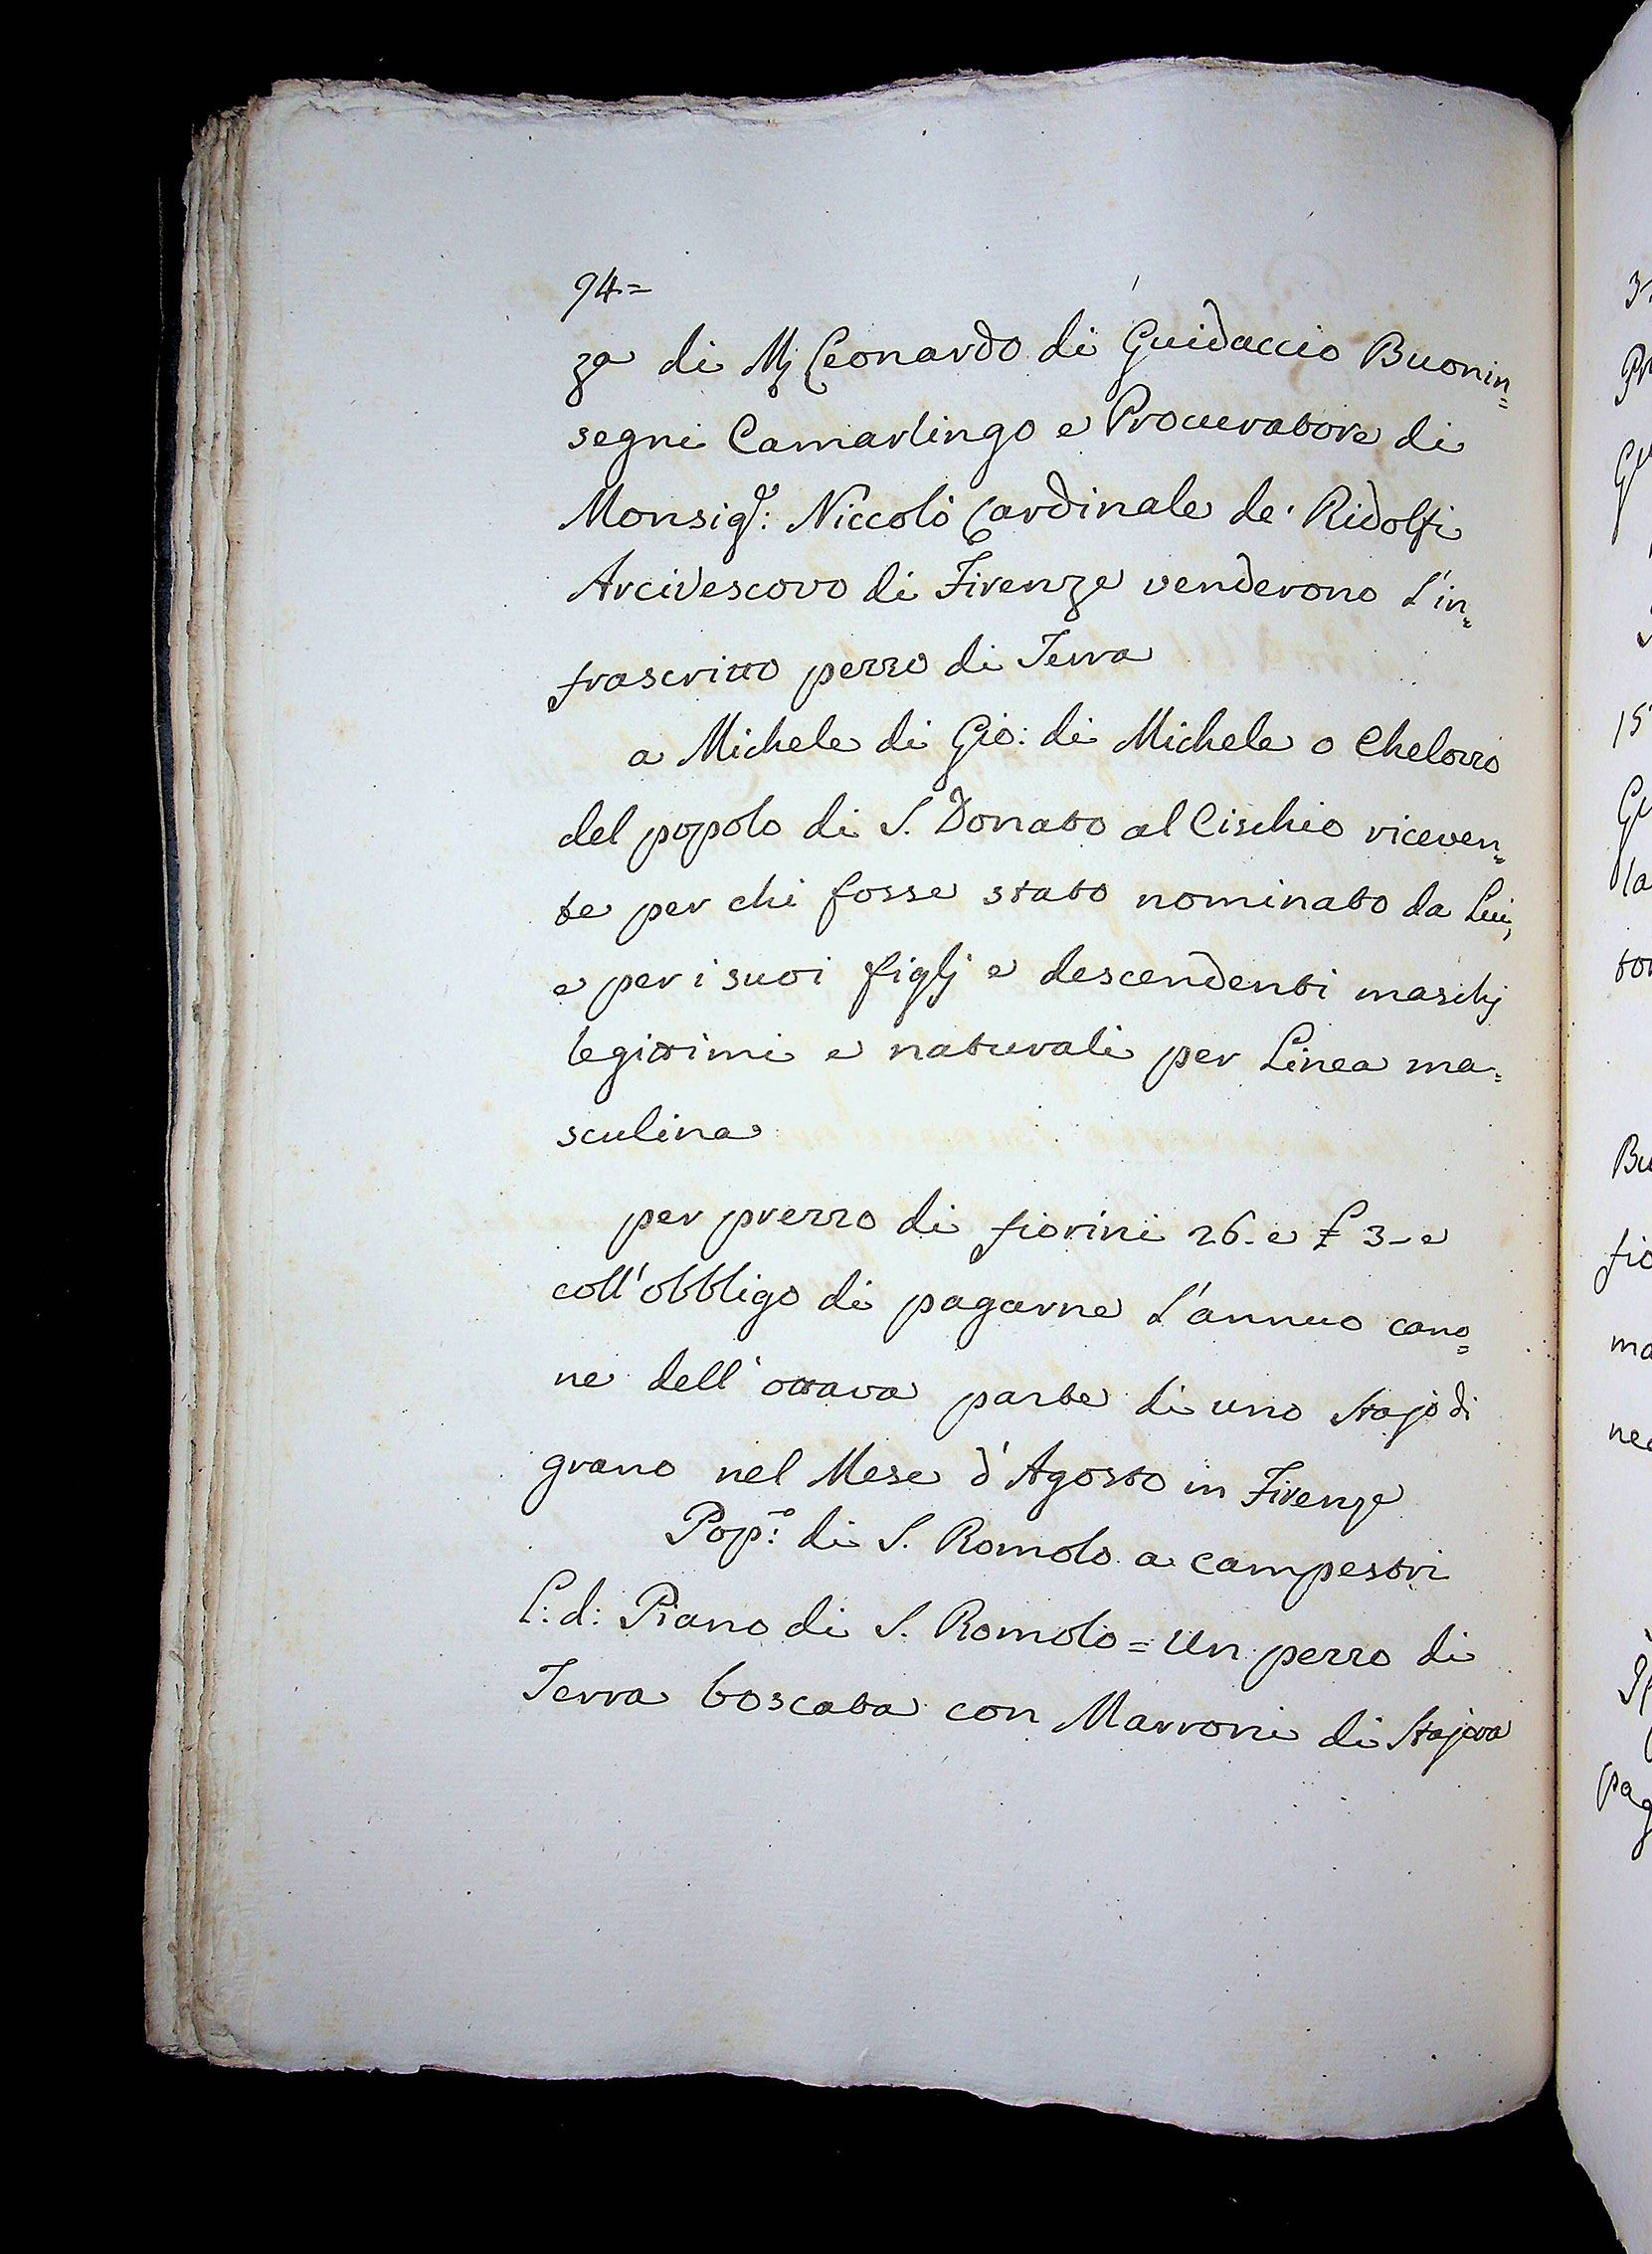 94=
za di Mſ Leonardo di Guidaccio Buonin=
segni Camarlingo e Procuratore di
Monsigʳ: Niccolò Cardinale de' Ridolfi
Arcivescovo di Firenze venderono l'in=
frascritto pezzo di Terra
a Michele di Gio: di Michele o Chelozzo
del popolo di S. Donato al Cischio riceven=
te per chi fosse stato nominato da Lui,
e per i suoi figlj e descendenti maschj
legittimi e naturali per Linea ma=
sculina
per prezzo di fiorini 26- e £ 3- e
coll'obbligo di pagarne l'annuo cano=
ne dell'ottava parte di uno Stajo di
grano nel Mese d'Agosto in Firenze
Popº: di S. Romolo a campestri
L: d: Piano di S. Romolo = Un pezzo di
Terra boscata con Marroni di Stajora